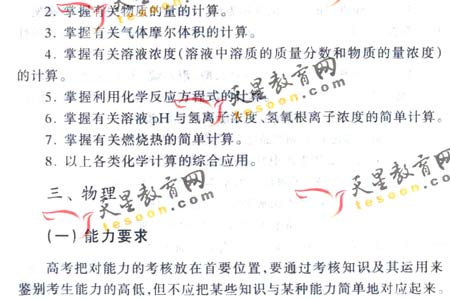 2. 掌握有关物质的量的计算。
3. 掌握有关气体摩尔体积的计算。
4. 掌握有关溶液浓度(溶液中溶质的质量分数和物质的量浓度)
的计算。
5. 掌握利用化学反应方程式的计算。
6. 掌握有关溶液pH与氢离子浓度、氢氧根离子浓度的简单计算。
7. 掌握有关燃烧热的简单计算。
8. 以上各类化学计算的综合应用。
三、物理
(一) 能力要求
高考把对能力的考核放在首要位置,要通过考核知识及其运用来
鉴别考生能力的高低,但不应把某些知识与某种能力简单地对应起来。
天星教育网
tesoon.com
天星教育网
tesoon.com
天星教育网
tesoon.com
天星教育网
tesoon.com